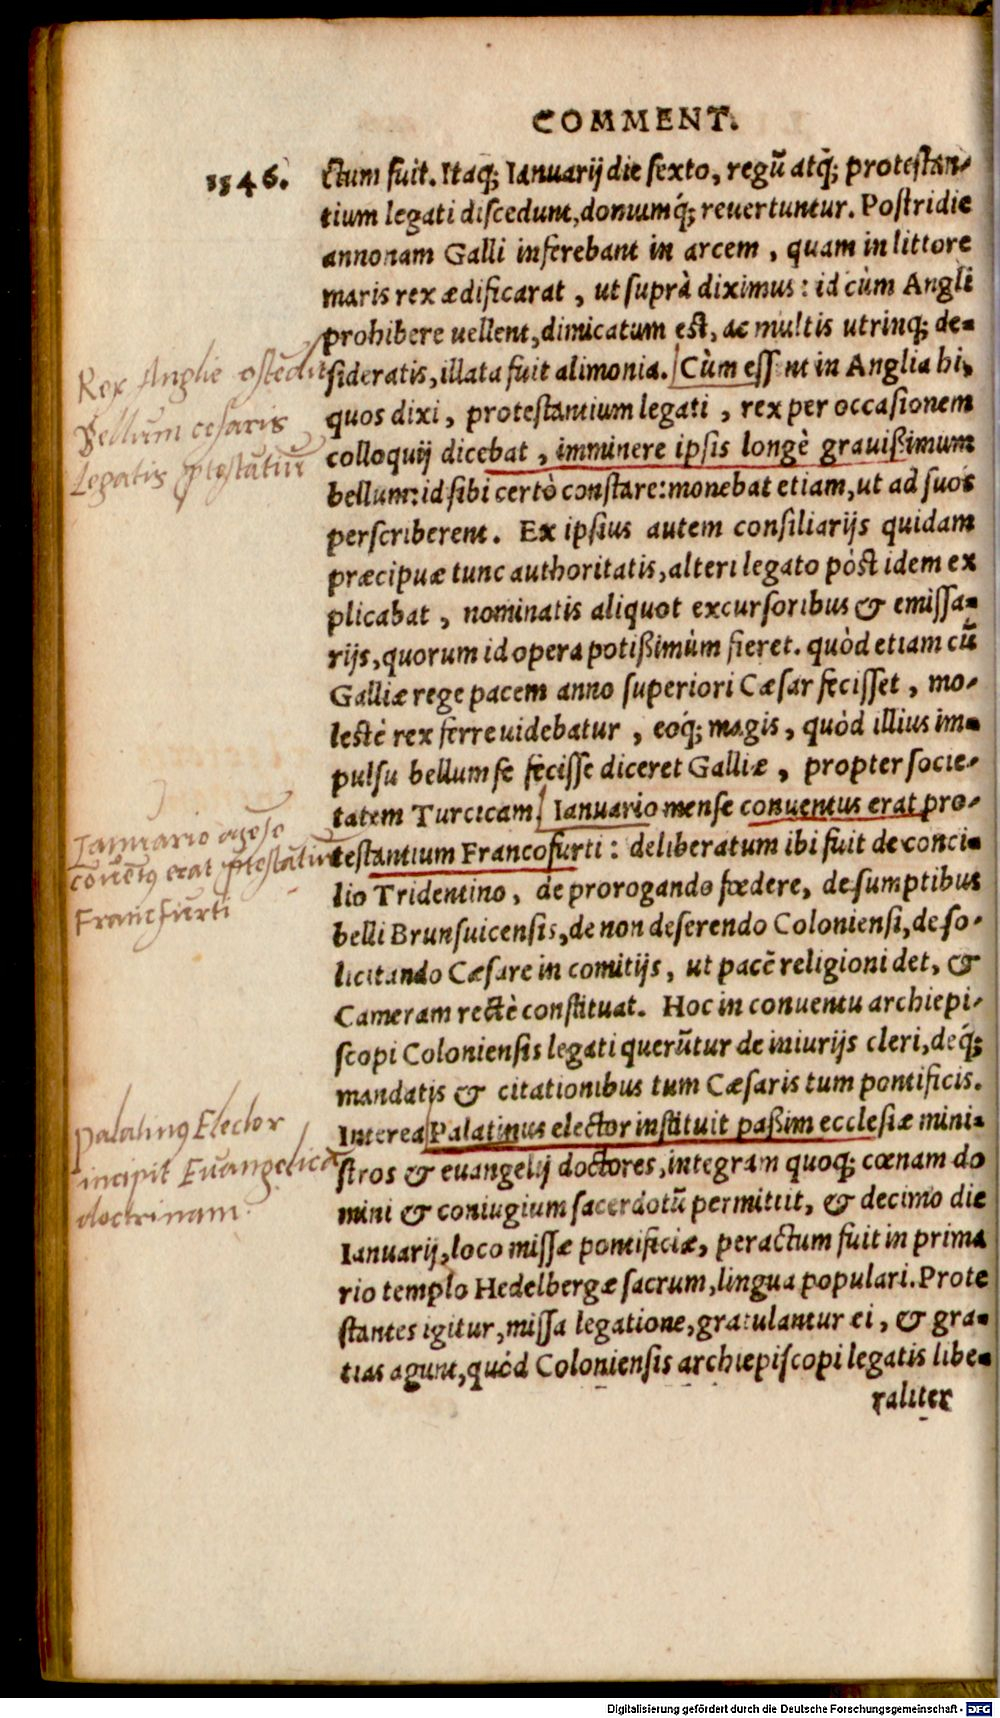 COMMENT.
1546.
ctum fuit. Itaq; Ianuarij die sexto, regū atq́; protestan-
tium legati discedunt, domumq́; reuertuntur. Postridie
annonam Galli inferebant in arcem, quam in littore
maris rex ædificarat, ut suprà diximus: id cùm Angli
prohibere uellent, dimicatum est, ac multis utrinq; de-
sideratis, illata fuit alimonia. Cùm essent in Anglia hi,
quos dixi, protestantium legati, rex per occasionem
colloquij dicebat, imminere ipsis longè grauißimum
bellum: id sibi certò constare: monebat etiam, ut ad suos
perscriberent. Ex ipsius autem consiliarijs quidam
præcipuæ tunc authoritatis, alteri legato pòst idem ex
plicabat, nominatis aliquot excursoribus & emissa-
rijs, quorum id opera potißimùm fieret. quòd etiam cū
Galliæ rege pacem anno superiori Cæsar fecisset, mo-
lestè rex ferre uidebatur, eoq́; magis, quòd illius im-
pulsu bellum se fecisse diceret Galliæ, propter socie-
tatem Turcicam. Ianuario mense conuentus erat pro-
testantium Francofurti: deliberatum ibi fuit de conci-
lio Tridentino, de prorogando fœdere, de sumptibus
belli Brunsuicensis, de non deserendo Coloniensi, de so-
licitando Cæsare in comitijs, ut pacē religioni det, &
Cameram rectè constituat. Hoc in conuentu archiepi-
scopi Coloniensis legati querūtur de iniurijs cleri, deq́;
mandatis & citationibus tum Cæsaris tum pontificis.
Interea Palatinus elector instituit paßim ecclesiæ mini-
stros & euangelij doctores, integram quoq; cœnam do
mini & coniugium sacerdotū permittit, & decimo die
Ianuarij, loco missæ pontificiæ, peractum fuit in prima
rio templo Hedelbergæ sacrum, lingua populari. Prote
stantes igitur, missa legatione, gratulantur ei, & gra-
tias agunt, quòd Coloniensis archiepiscopi legatis libe-
raliter
Rex Anglie ostedit
Bellum cesaris
Legatis ptestatiū
Ianuario mēse
coventꝰ erat ptestatiū
Francfurti
Palatinꝰ Elector
incipit Euangelicā
doctrinam.
Digitalisierung gefördert durch die Deutsche Forschungsgemeinschaft - DFG